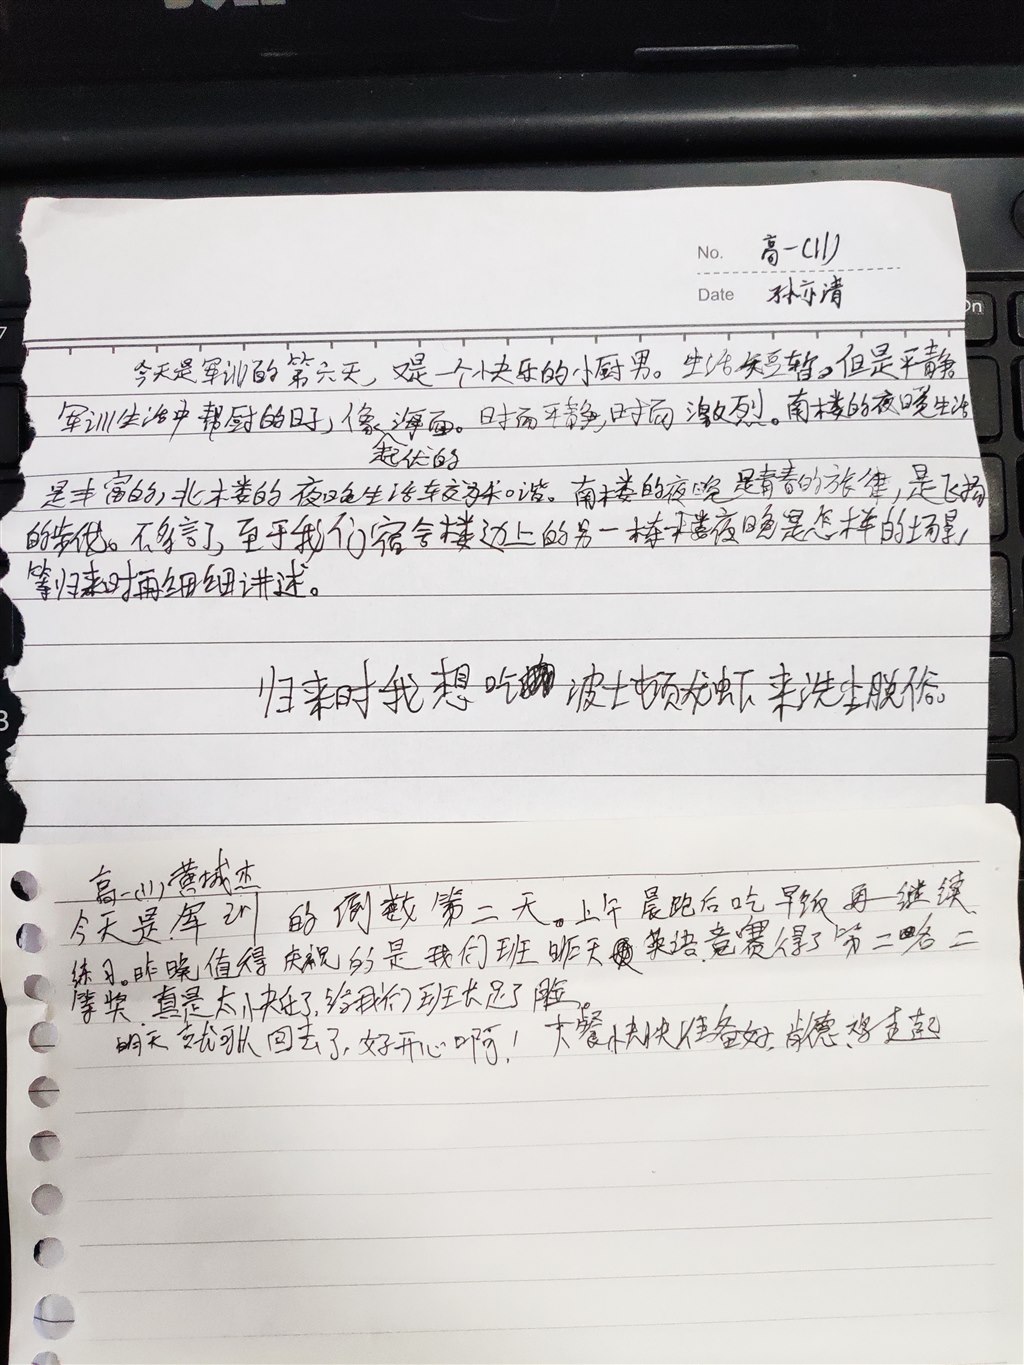 No. 高一(11)
Date 孙亦清
今天是军训的第六天，又是一个快乐的小厨男。生活短暂。但是平静
军训生活中帮厨的日子，像起伏的海面。时而平静，时而激烈。南楼的夜晚生活
是丰富的，北楼的夜晚生活较为和谐。南楼的夜晚是青春的旋律，是飞扬
的步伐。不多言了，至于我们宿舍楼边上的另一栋楼夜晚是怎样的场景，
等归来时再细细讲述。
归来时我想吃波士顿龙虾来洗尘脱俗。
高一(11) 黄城杰
今天是军训的倒数第二天。上午晨跑后吃早饭再继续
练习。昨晚值得庆祝的是我们班昨天英语竞赛得了第二名二
等奖 真是太快乐了，给我们班长足了脸。
明天就可以回去了，好开心啊！大餐快快准备好，肯德鸡走起
On
7
3